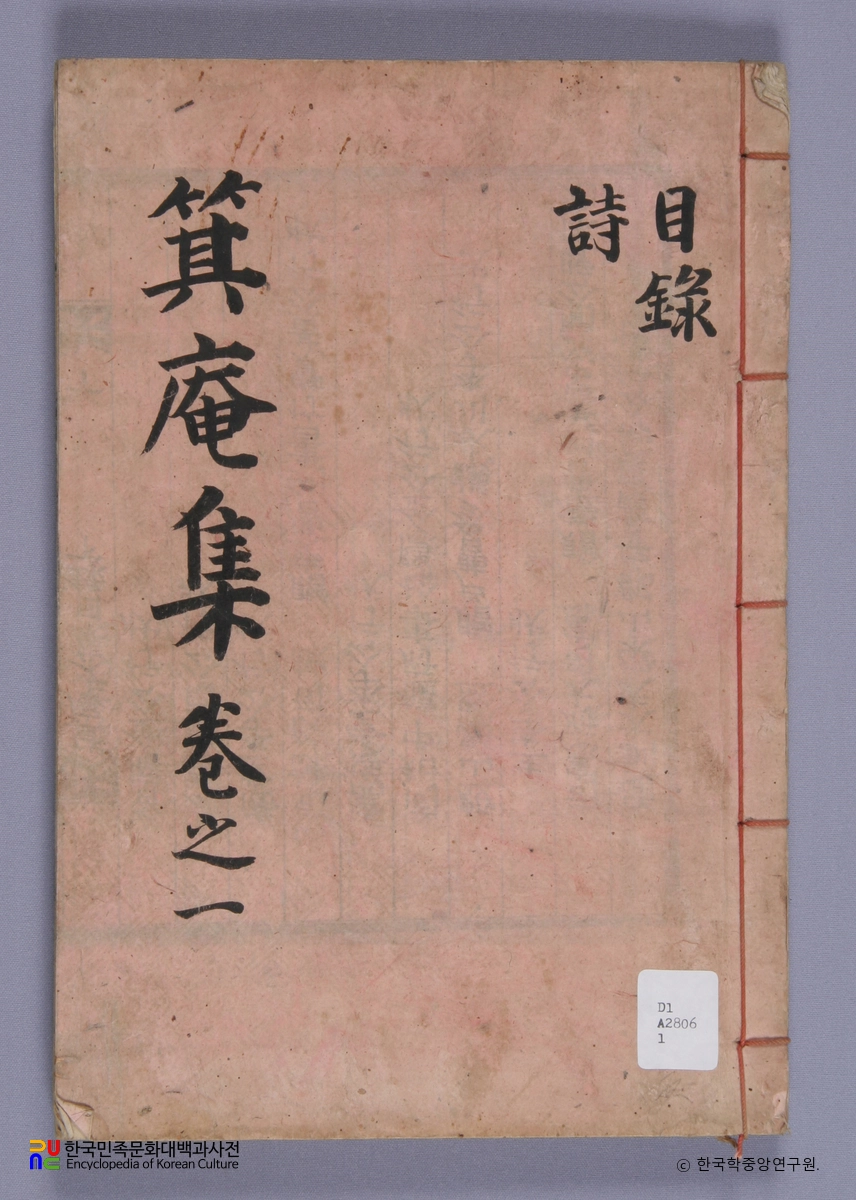 目錄
詩
箕庵集 卷之一
D1
A2806
1
한국민족문화대백과사전
Encyclopedia of Korean Culture
© 한국학중앙연구원.